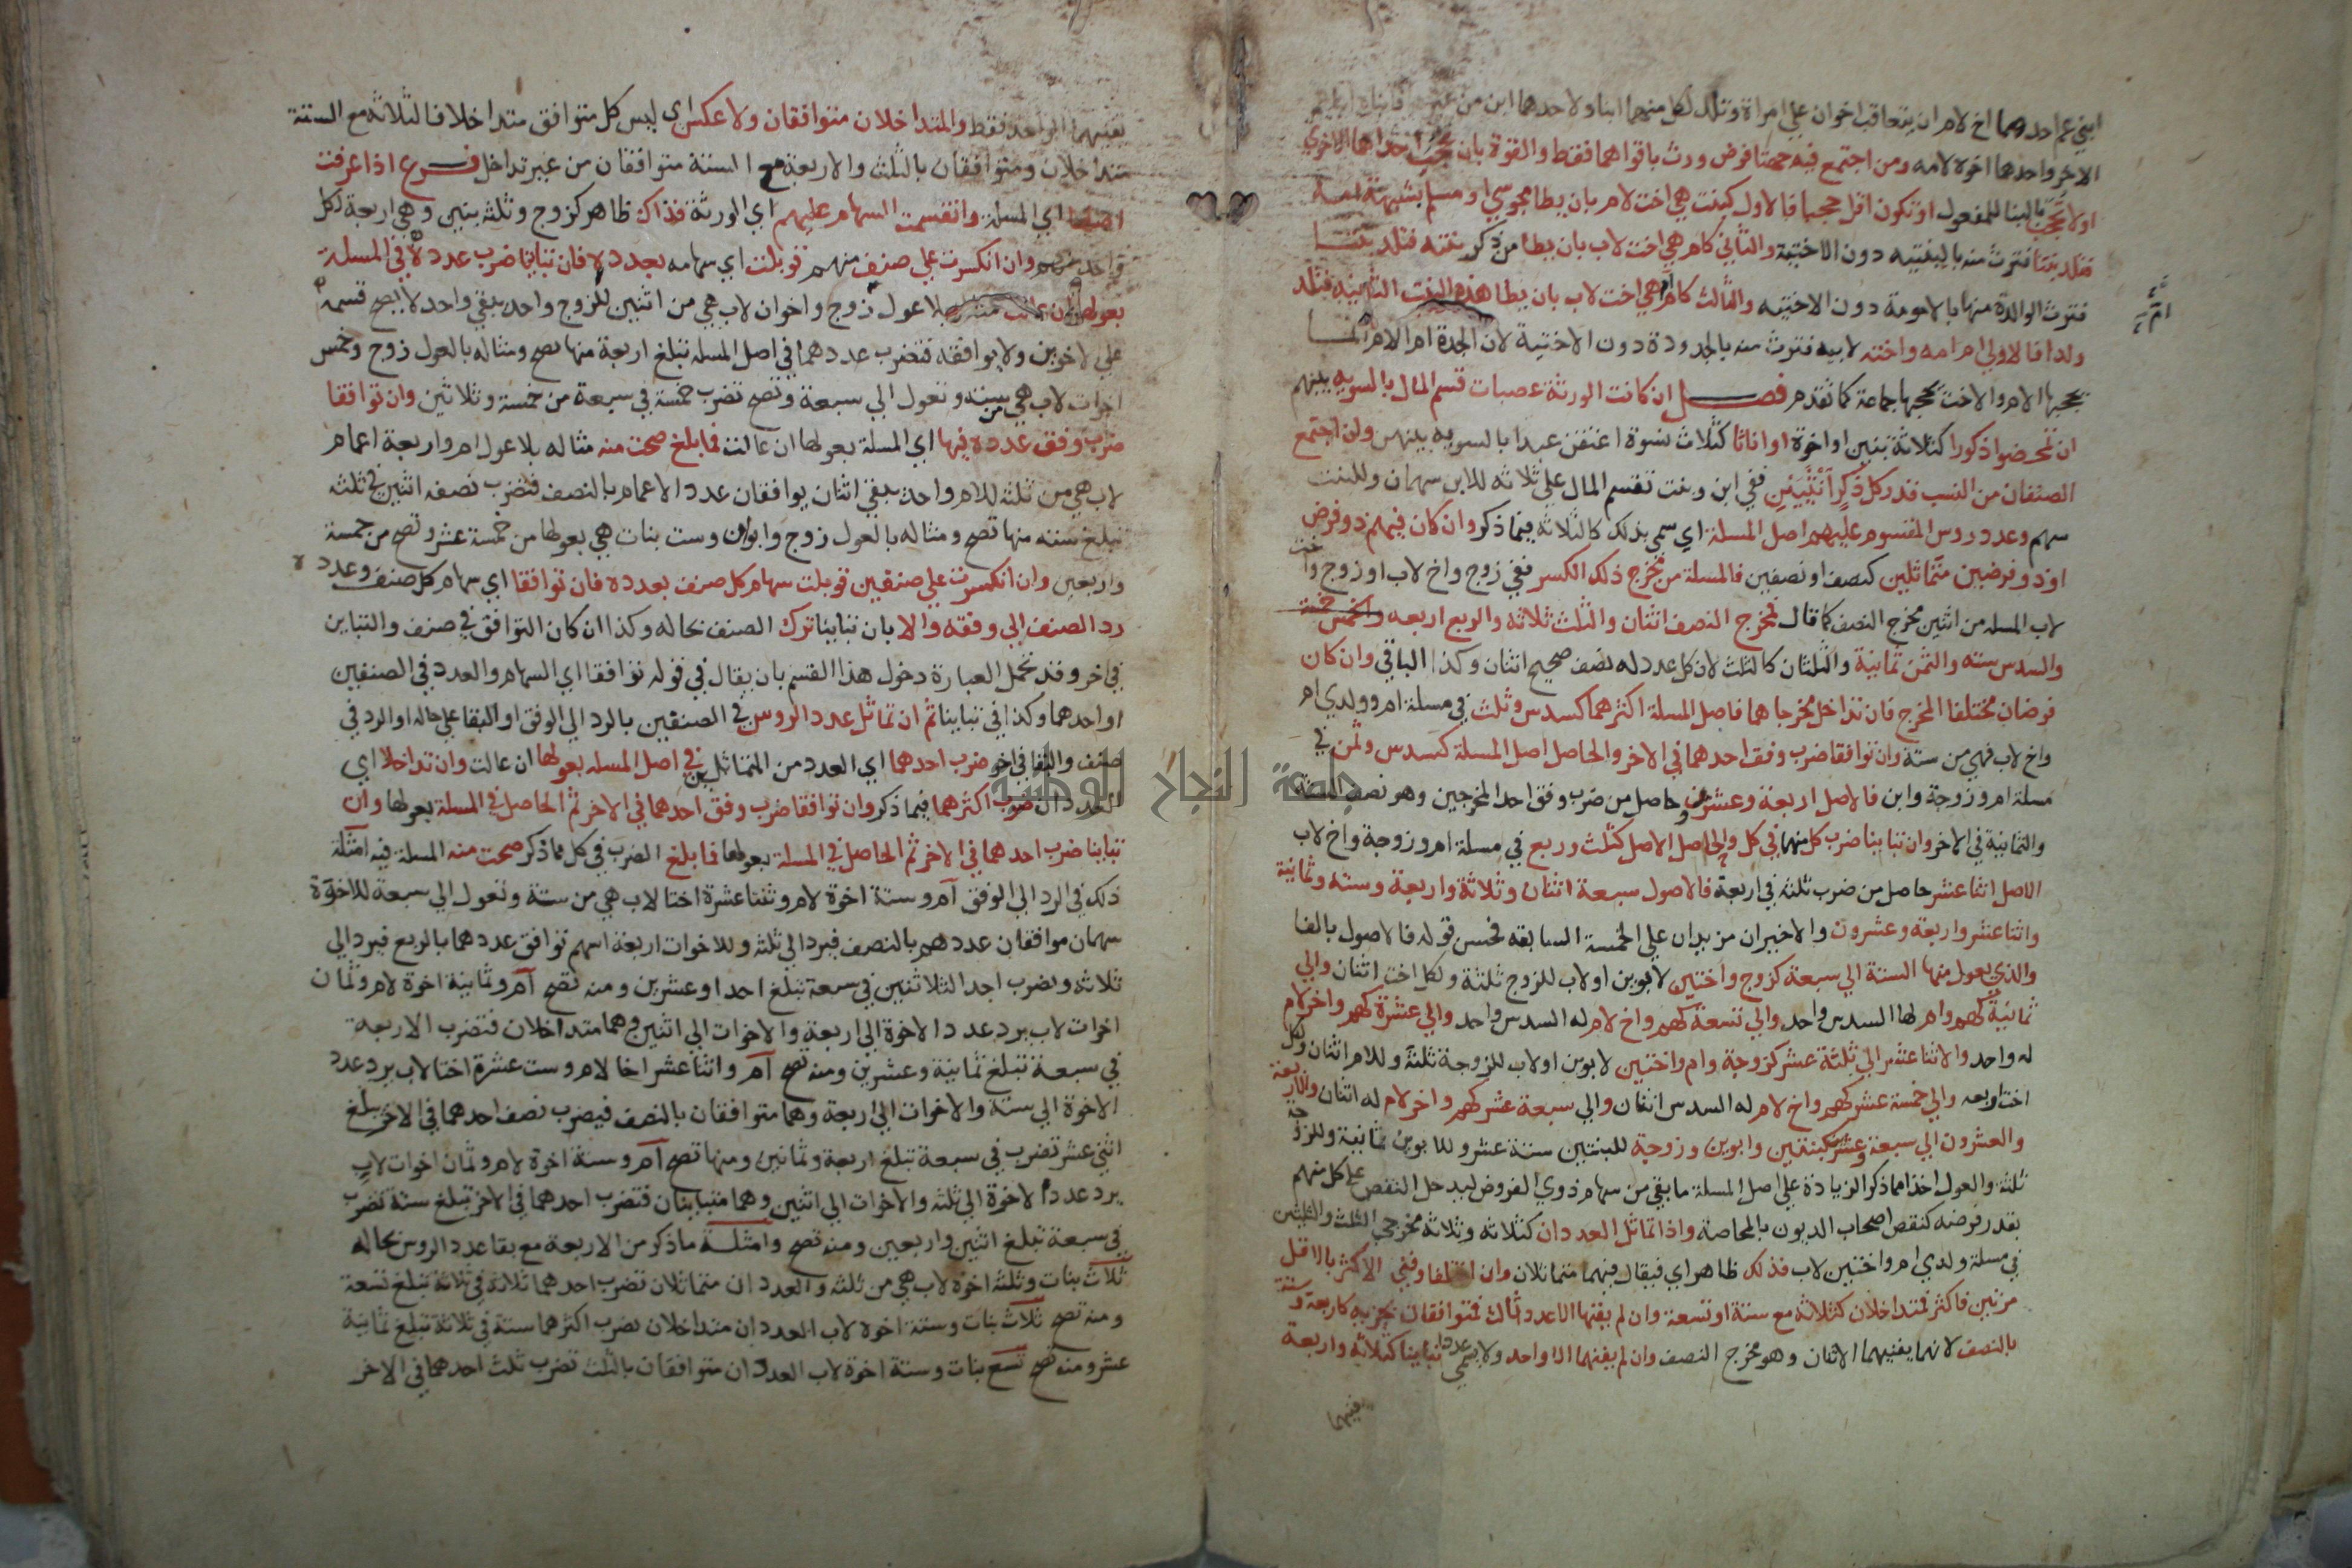 ابني عم احدهما اخ لام ان يتعاقب اخوان علي امراة وتلد لكل منهما ابنا ولاحدهما ابن من غيرها فابناه ابنا عم
الاخر واحدهما اخوه لامه ومن اجتمع فيه جهتا فرض ورث باقواهما فقط والقوة بان تحجب احداهما الاخري
اولا تحجب بالبنا للمفعول او تكون اقل حجبا فالاول كبنت هي اخت لام بان يطا مجوسي او مسلم بشبهة امه
فتلد بنتا فترث منه بالبنتيه دون الاختية والثاني كام هي اخت لاب بان يطا من ذكر بنته فتلد بنتا
فترث الوالدة منها بالامومة دون الاختيه والثالث كام ام هي اخت لاب بان يطا هذه البنت الثانيه فتلد
ولدا فالاولي ام امه واخته لابيه فترث منه بالجدودة دون الاختية لان الجدة ام الام انما
يحجبها الام والاخت يحجبها جماعة كما تقدم فصل ان كانت الورثة عصبات قسم المال بالسويه بينهم
ان تمحضوا ذكورا كثلاثة بنين او اخوة او اناثا كثلاث نسوة اعتقن عبدا بالسويه بينهن ولو اجتمع
الصنفان من النسب قدر كل ذكر انثيين ففي ابن وبنت تقسم المال علي ثلاثه للابن سهمان وللبنت
سهم وعدد روس المقسوم عليهم اصل المسلة اي سمي بذلك كالثلاثه فيما ذكر وان كان فيهم ذو فرض
او ذو فرضين متماثلين كنصف او نصفين فالمسلة من مخرج ذلك الكسر ففي زوج واخ لاب او زوج واخت
لاب المسله من اثنين مخرج النصف كما قال فمخرج النصف اثنان والثلث ثلاثه والربع اربعه
والسدس سته والثمن ثمانية والثلثان كالثلث لان كل عدد له نصف صحيح اثنان وكذا الباقي وان كان
فرضان مختلفا المخرج فان تداخل مخرجاهما فاصل المسلة اكثرهما كسدس وثلث في مسلة ام وولدي ام
واخ لاب فهي من ستة وان توافقا ضرب وفق احدهما في الاخر والحاصل اصل المسلة كسدس وثمن في
مسلة ام وزوجة وابن فالاصل اربعة وعشرون حاصل من ضرب وفق احد المخرجين وهو نصف الستة
والثمانية في الاخر وان تباينا ضرب كل منهما في كل والحاصل الاصل كثلث وربع في مسلة ام وزوجة واخ لاب
الاصل اثنا عشر حاصل من ضرب ثلثه في اربعة فالاصول سبعة اثنان وثلاثة واربعة وسته وثمانية
واثنا عشر واربعة وعشرون والاخيران مزيدان علي الخمسة السابقه فحسن قوله فالاصول بالفا
والذي يعول منها الستة الي سبعة كزوج واختين لابوين او لاب للزوج ثلثة ولكل اخت اثنان والي
ثمانية كهم وام لها السدس واحد والي تسعة كهم واخ لام له السدس واحد والي عشرة كهم واخر لام
له واحد والاثنا عشر الي ثلثة عشر كزوجة وام واختين لابوين او لاب للزوجة ثلثة وللام اثنان ولكل
اخت اربعه والي خمسة عشر كهم واخ لام له السدس اثنان والي سبعة عشر كهم واخر لام له اثنان والاربعة
والعشرون الي سبعة وعشرين كبنتين وابوين وزوجة للبنتين ستة عشر وللابوين ثمانية وللزوجة
ثلثة والعول اخذا مما ذكر الزيادة علي اصل المسلة ما بقي من سهام ذوي الفروض ليدخل النقص علي كل منهم
بقدر فرضه كنقص اصحاب الديون بالمحاصة واذا تماثل العددان كثلاثه وثلاثه مخرجي الثلث والثلثين
في مسلة ولدي ام واختين لاب فذلك ظاهر اي فيقال فيهما متماثلان وان اختلفا وفني الاكثر بالاقل
مرتين فاكثر فمتداخلان كثلاثه مع ستة او تسعة وان لم يفنهما الا عدد ثالث فمتوافقان بجزيه كاربعة وستة
بالنصف لانهما يفنيهما الاثنان وهو مخرج النصف وان لم يفنهما الا واحد ولا يسمي عددا تباينا كثلاثة واربعة
يفنيهما
يفنيهما الواحد فقط والمتداخلان متوافقان ولا عكس اي ليس كل متوافق متداخلا فالثلاثه مع الستة
متداخلان ومتوافقان بالثلث والاربعة مع الستة متوافقان من غير تداخل فرع اذا عرفت
اصلها اي المسلة وانقسمت السهام عليهم اي الورثة فذاك ظاهر كزوج وثلثه بنين وهي اربعة لكل
واحد سهم وان انكسرت علي صنف منهم قوبلت اي سهامه بعدده فان تباينا ضرب عدده في المسلة
بعولها ان عالت مثاله بلا عول زوج واخوان لاب هي من اثنين للزوج واحد يبقي واحد لا يصح قسمه
علي الاخوين ولا يوافقه فتضرب عددهما في اصل المسله تبلغ اربعة منها تصح ومثاله بالعول زوج وخمس
اخوات لاب هي من سته وتعول الي سبعة وتصح تضرب خمسة في سبعة من خمسة وثلاثين وان توافقا
ضرب وفق عدده فيها اي المسلة بعولها ان عالت فما بلغ صحت منه مثاله بلا عول ام واربعة اعمام
لاب هي من ثلثه للام واحد يبقي اثنان يوافقان عدد الاعمام بالنصف فتضرب نصفه اثنين في ثلثه
تبلغ سته منها تصح ومثاله بالعول زوج وابوان وست بنات هي بعولها من خمسة عشر وتصح من خمسة
واربعين وان انكسرت علي صنفين قوبلت سهام كل صنف بعدده فان توافقا اي سهام كل صنف وعدده
رد الصنف الي وفقه والا بان تباينا ترك الصنف بحاله وكذا ان كان التوافق في صنف والتباين
في اخر وقد تحمل العبارة دخول هذا القسم بان يقال في قوله توافقا اي السهام والعدد في الصنفين
او احدهما وكذا في تباينا ثم ان تماثل عدد الروس في الصنفين بالرد الي الوفق او البقا علي حاله او الرد في
صنف والبقا في اخر ضرب احدهما اي العدد من المتماثلين في اصل المسله بعولها ان عالت وان تداخلا اي
العددان ضرب اكثرهما فيما ذكر وان توافقا ضرب وفق احدهما في الاخر ثم الحاصل في المسلة بعولها وان
تباينا ضرب احدهما في الاخر ثم الحاصل في المسلة بعولها فما بلغ الضرب في كل مما ذكر صحت منه المسلة فيه امثلة
ذلك في الرد الي الوفق ام وستة اخوة لام وثنتا عشرة اختا لاب هي من ستة وتعول الي سبعة للاخوة
سهمان موافقان عددهم بالنصف فيرد الي ثلثه وللاخوات اربعة اسهم توافق عددهما بالربع فيرد الي
ثلاثه وتضرب احد الثلاثتين في سبعة تبلغ احدا وعشرين ومنه تصح ام وثمانية اخوة لام وثمان
اخوات لاب يرد عدد الاخوة الي اربعة والاخوات الي اثنين وهما متداخلان فتضرب الاربعة
في سبعة تبلغ ثمانية وعشرين ومنه تصح ام واثنا عشر اخا لام وست عشرة اختا لاب يرد عدد
الاخوة الي ستة والاخوات الي اربعة وهما متوافقان بالنصف فيضرب نصف احدهما في الاخر يبلغ
اثني عشر تضرب في سبعة تبلغ اربعة وثمانين ومنها تصح ام وستة اخوة لام وثمان اخوات لاب
يرد عدد الاخوة الي ثلثه والاخوات الي اثنين وهما متباينان فتضرب احدهما في الاخر تبلغ ستة تضرب
في سبعة تبلغ اثنين واربعين ومنه تصح وامثلة ما ذكر من الاربعة مع بقا عدد الروس بحاله
ثلاث بنات وثلثه اخوة لاب هي من ثلثه والعددان متماثلان تضرب احدهما ثلاثة في ثلاثة تبلغ تسعة
ومنه تصح ثلاث بنات وستة اخوة لاب العددان متداخلان تضرب اكثرهما ستة في ثلاثة تبلغ ثمانية
عشر ومنه تصح تسع بنات وستة اخوة لاب العددان متوافقان بالثلث تضرب ثلث احدهما في الاخر
جامعة النجاح الوطنية